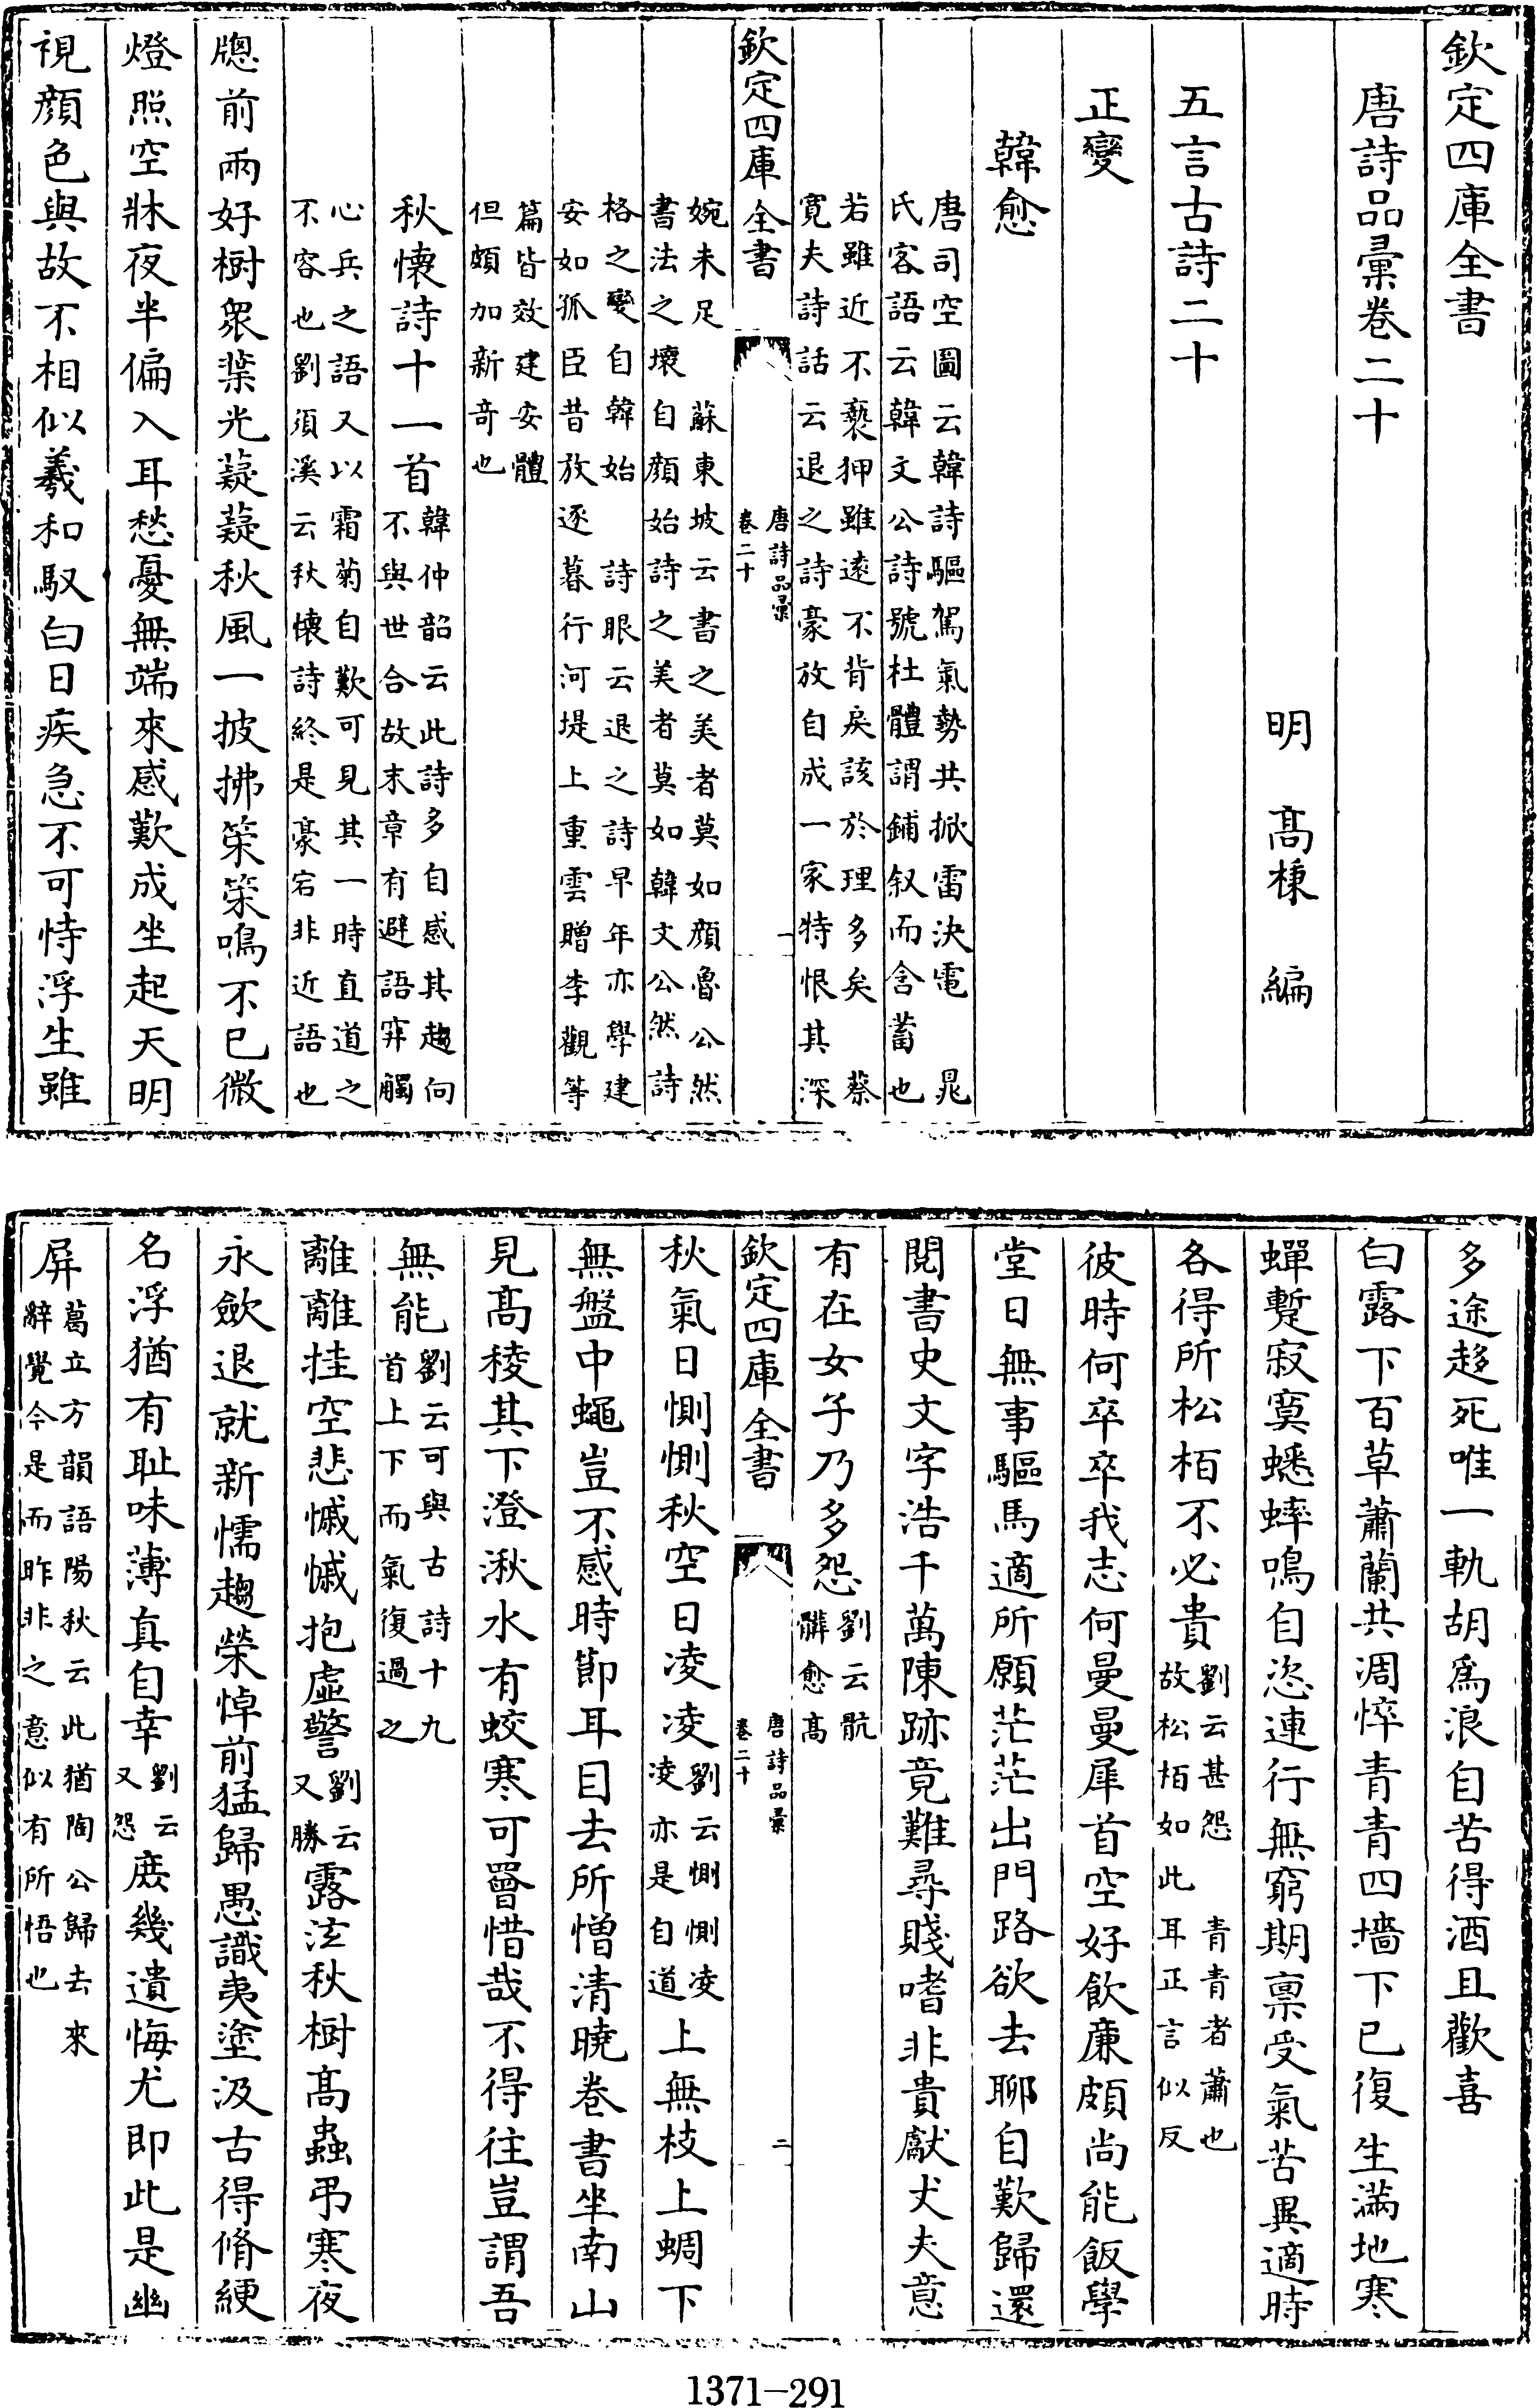 欽定四庫全書
唐詩品彙卷二十
明　高棅　編
五言古詩二十
正變
韓愈
唐司空圖云韓詩驅駕氣勢共掀雷決電　晁
氏客語云韓文公詩號杜體謂鋪叙而含蓄也
若雖近不褻狎雖遠不背戾該於理多矣　蔡
寛夫詩話云退之詩豪放自成一家特恨其深
欽定四庫全書
唐詩品彙
卷二十
一
婉未足　蘇東坡云書之美者莫如顔魯公然
書法之壞自顔始詩之美者莫如韓文公然詩
格之變自韓始　詩眼云退之詩早年亦學建
安如孤臣昔放逐暮行河堤上重雲贈李觀等
篇皆效建安體
但頗加新奇也
秋懐詩十一首
韓仲韶云此詩多自感其趨向
不與世合故末章有避語穽觸
心兵之語又以霜菊自歎可見其一時直道之
不容也劉須溪云秋懐詩終是豪宕非近語也
牕前兩好樹衆葉光薿薿秋風一披拂策策鳴不已微
燈照空牀夜半偏入耳愁憂無端來感歎成坐起天明
視顔色與故不相似羲和馭白日疾急不可恃浮生雖
多途趍死唯一軌胡為浪自苦得酒且歡喜
白露下百草蕭蘭共凋悴青青四墻下已復生滿地寒
蟬蹔寂寞蟋蟀鳴自恣連行無窮期禀受氣苦異適時
各得所松栢不必貴
劉云甚怨　青青者蕭也
故松栢如此耳正言似反
彼時何卒卒我志何曼曼犀首空好飲亷頗尚能飯學
堂日無事驅馬適所願茫茫出門路欲去聊自歎歸還
閲書史文字浩千萬陳跡竟難尋賤嗜非貴獻丈夫意
有在女子乃多怨
劉云骯
髒愈髙
欽定四庫全書
唐詩品彙
卷二十
二
秋氣日惻惻秋空日凌凌
劉云惻惻凌
凌亦是自道
上無枝上蜩下
無盤中蠅豈不感時節耳目去所憎清曉卷書坐南山
見髙稜其下澄湫水有蛟寒可罾惜哉不得往豈謂吾
無能
劉云可與古詩十九
首上下而氣復過之
離離挂空悲慽慽抱虚警
劉云
又勝
露泫秋樹髙蟲弔寒夜
永歛退就新懦趨榮悼前猛歸愚識夷塗汲古得脩綆
名浮猶有耻味薄真自幸
劉云
又怨
庶幾遺悔尤即此是幽
屏
葛立方韻語陽秋云此猶陶公歸去來
辭覺今是而昨非之意似有所悟也
1371-291